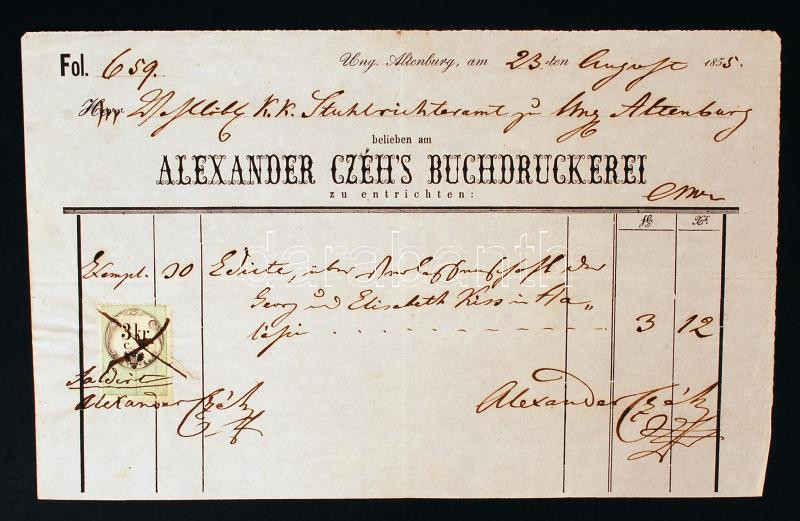 Fol. 659.
Ung. Altenburg, am 23-ten August 1855.
Herrn Wohllöbl K.K. Stuhlrichteramt zu Ung Altenburg
belieben am
ALEXANDER CZÉH'S BUCHDRUCKEREI
zu entrichten:
fl. Xr.
Exempl. 30 Edicte, über Verlassenschaft der
Georg und Elisabeth Kiss in Ha„
lászi 3 12
3 kr.
C.M.
Saldirt
Alexander Czéh
Alexander Czéh
darabanth